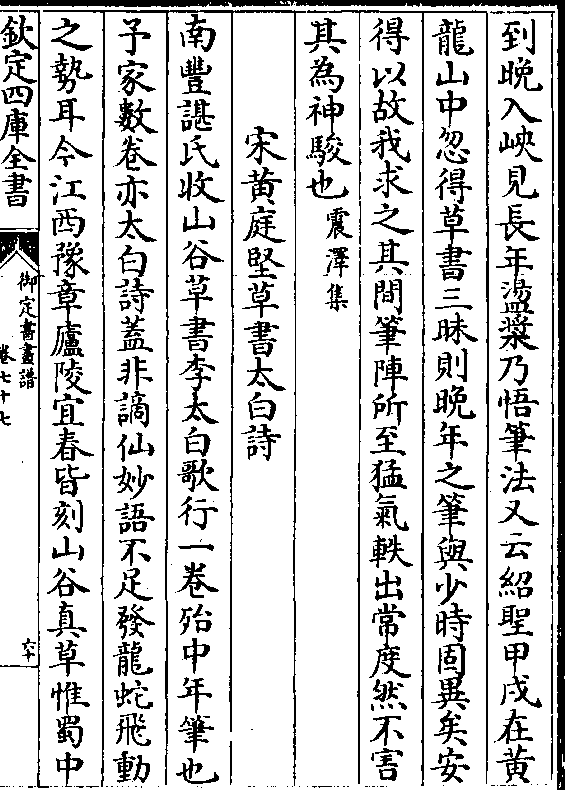 到晚入峽見長年盪槳乃悟筆法又云紹聖甲戌在黄
龍山中忽得草書三昧則晚年之筆與少時固異矣安
得以故我求之其間筆陣所至猛氣軼出常度然不害
其為神駿也震澤集
宋黄庭堅草書太白詩
南豐諶氏收山谷草書李太白歌行一卷殆中年筆也
予家數卷亦太白詩蓋非謫仙妙語不足發龍蛇飛動
之勢耳今江西豫章廬陵宜春皆刻山谷真草惟蜀中
欽定四庫全書
御定書畫譜
卷七十七
六十